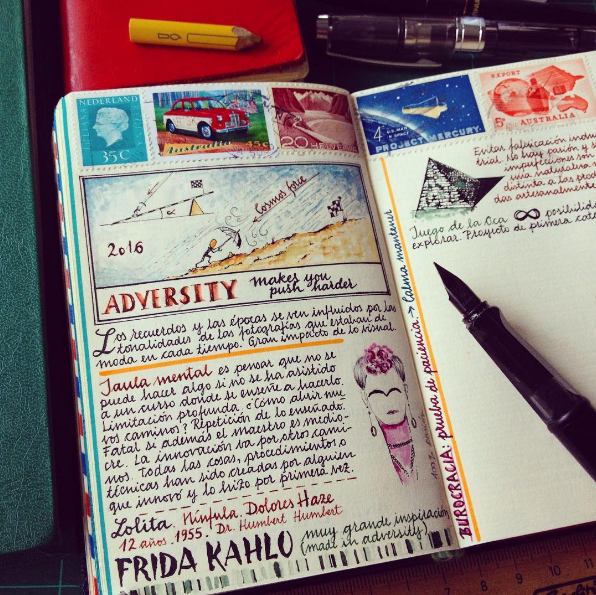 NEDERLAND
35C
Australia
45c
20
4¢
U.S. MAN IN SPACE
PROJECT MERCURY
EXPORT
5c
AUSTRALIA
2016
Cosmos force
ADVERSITY makes you push harder
Los recuerdos y las épocas se ven influidos por las
tonalidades de las fotografías que estaban de
moda en cada tiempo. Gran impacto de lo visual.
Jaula mental es pensar que no se
puede hacer algo si no se ha asistido
a un curso donde se enseñe a hacerlo.
Limitación profunda. ¿Cómo abrir nue
vos caminos? Repetición de lo enseñado.
Fatal si además el maestro es medio-
cre. La innovación va por otros cami-
nos. Todas las cosas, procedimientos o
técnicas han sido creadas por alguien
que innovó y lo hizo por primera vez.
Lolita. Nínfula. Dolores Haze
12 años. 1955. Dr. Humbert Humbert
FRIDA KAHLO muy grande inspiración
(made in adversity).
Evitar fabricación indus
trial. No hay pasión y s
imperfecciones son
una naturaleza
distinta a las produ
das artesanalmente
Juego de la Oca ∞ posibilida
explorar. Proyecto de primera cate
BUROCRACIA: prueba de paciencia → Calma mantener
9 10 11 12 13